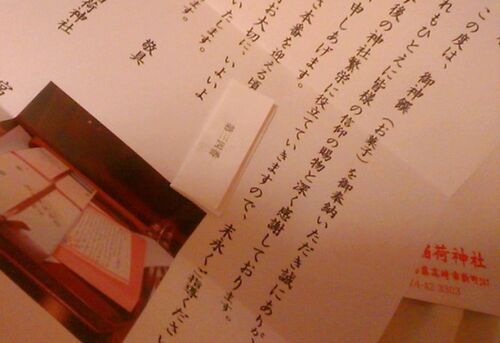 この度は、御神饌(お菓子)を御奉納いただき誠にありが
れもひとえに皆様の信仰の賜物と深く感謝しております。
後の神社繁栄に役立てていきますので、末永くご
申しあげます。
き本番を迎える頃
お大切に、いよいよ
いたします。
敬具
荷神社
宮
稲荷神社
高崎市新町
4-42 3303